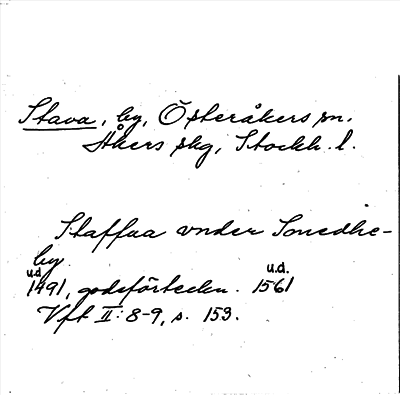 Stava, by, Österåkers sn.
Åkers skg, Stockh. l.
Staffua vnder Smedhe-
by.
u.d. u.d.
1491, godsförteckn. 1561
Vft II: 8-9, s. 153.